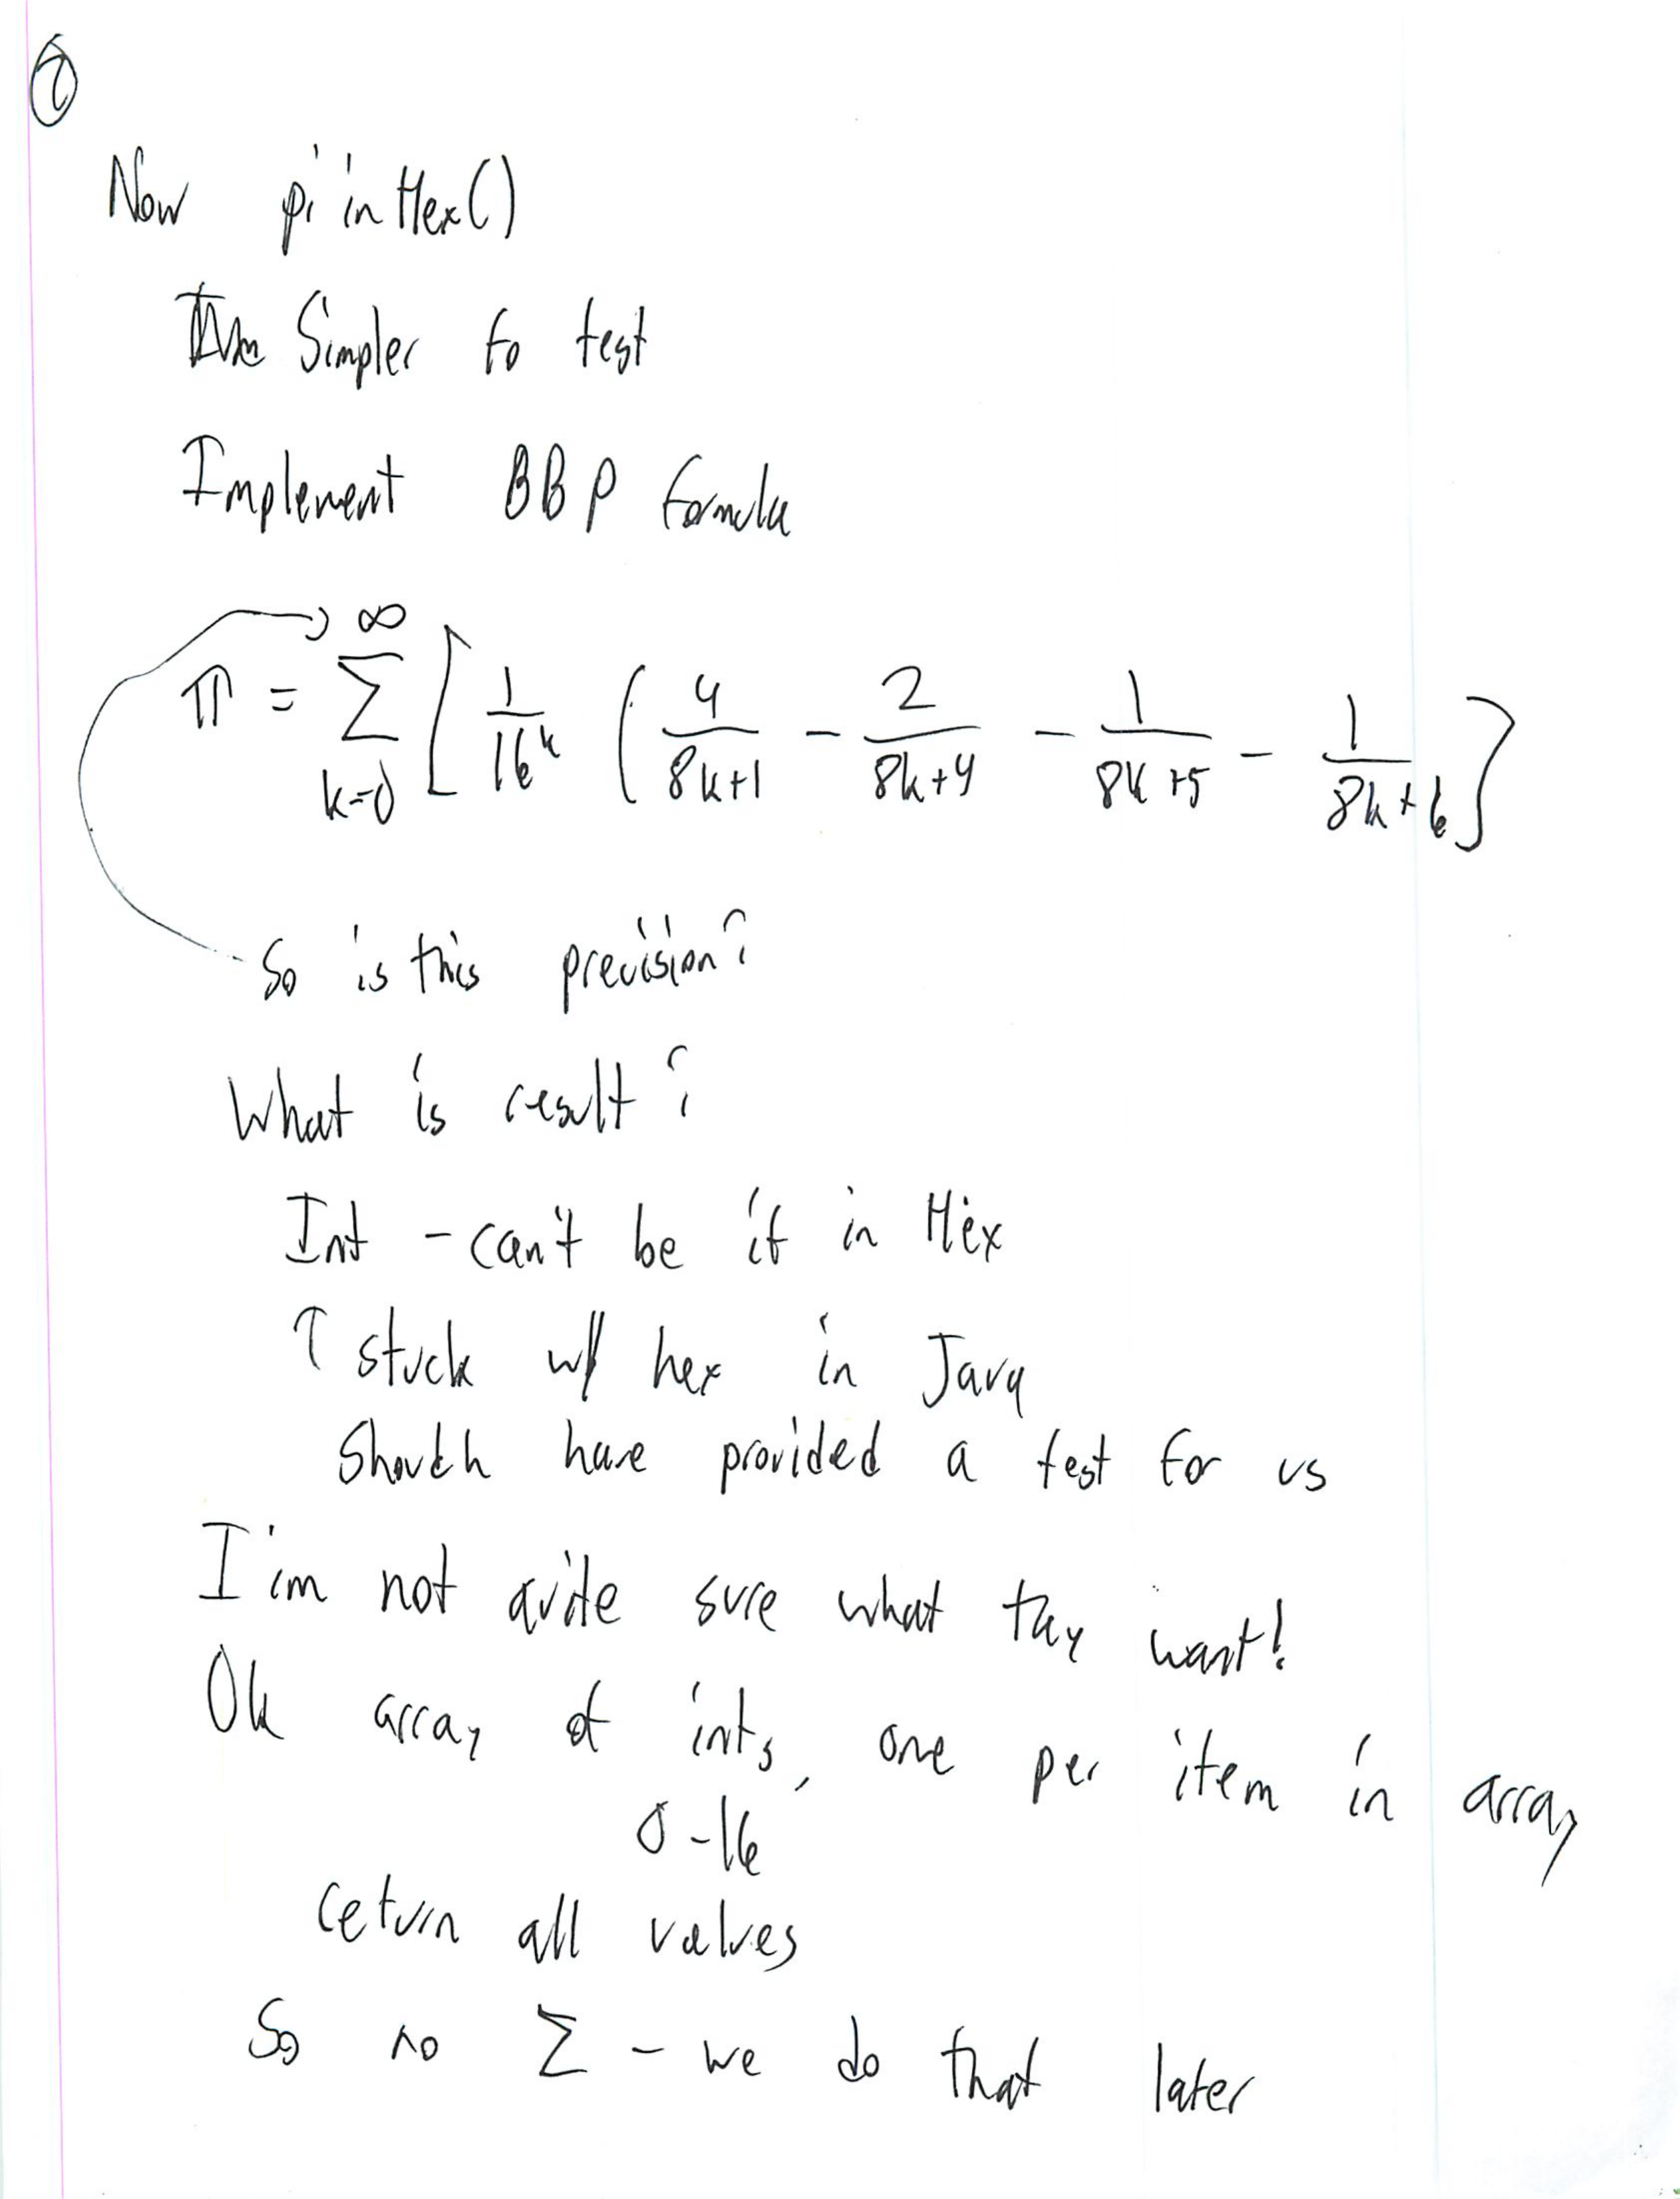 Now piinHex()
Simpler to test
Implement BBP formula
π = ∑ k=0 ∞ [ 1/16^k ( 4/(8k+1) - 2/(8k+4) - 1/(8k+5) - 1/(8k+6) ]
So is this precision?
What is result?
Int - can't be if in Hex
↑ stuck w/ hex in Java
have provided a test for us
I'm not quite sure what they want!
Ok array of ints, one per item in array
0-16
return all values
So no ∑ - we do that later